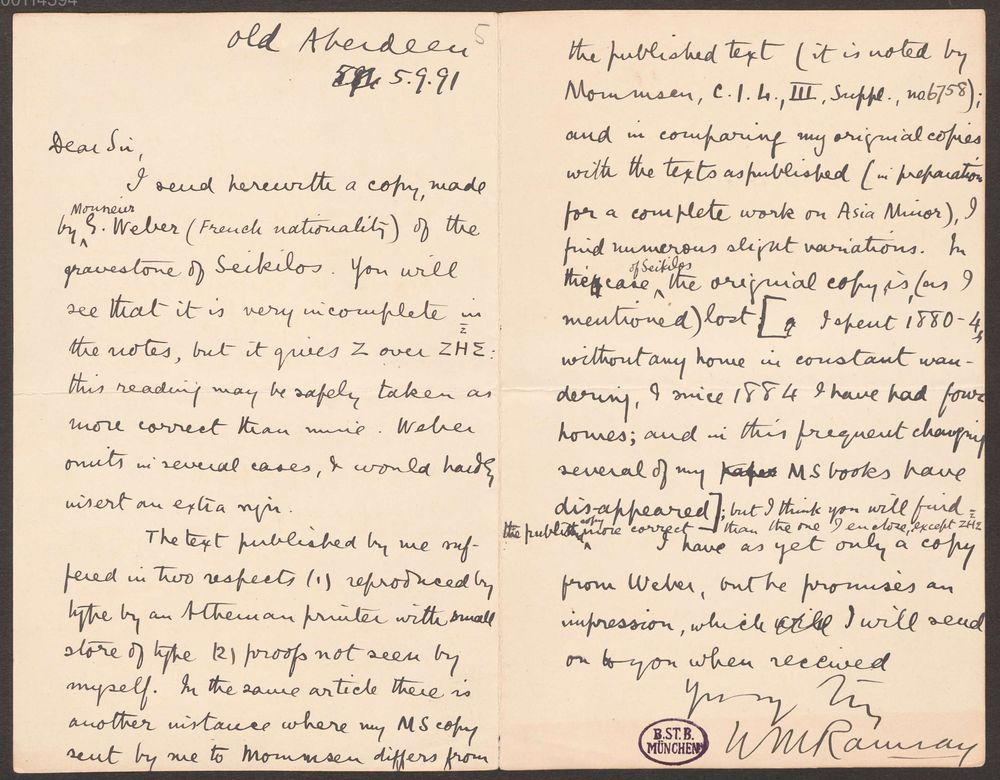 00114594
Old Aberdeen 5
5.9.91
Dear Sir,
I send herewith a copy, made
Monsieur
by G. Weber (French nationality) of the
gravestone of Seikilos. You will
see that it is very incomplete in
the notes, but it gives Z over Z̅HΣ:
this reading may be safely taken as
more correct than mine. Weber
omits in several cases, & would hardly
insert an extra sign.
The text published by me suf-
fered in two respects (1) reproduced by
type by an Athenian printer with small
store of type (2) proofs not seen by
myself. In the same article there is
another instance where my MS copy
sent by me to Mommsen differs from
the published text (it is noted by
Mommsen, C.I.L., III, Suppl., no 6758);
and in comparing my original copies
with the texts as published (in preparation
for a complete work on Asia Minor), I
find numerous slight variations. In
of Seikilos
the case, the original copy is (as I
mentioned) lost [I spent 1880-4,
without any home in constant wan-
dering, & since 1884 I have had four
homes; and in this frequent changing
several of my paper MS books have
disappeared]; but I think you will find
copy
the publish more correct than the one I enclose, except ZHΣ
I have as yet only a copy
from Weber, but he promises an
impression, which I will send
on to you when received
Yours
WMRamsay
B.ST.B.
MÜNCHEN